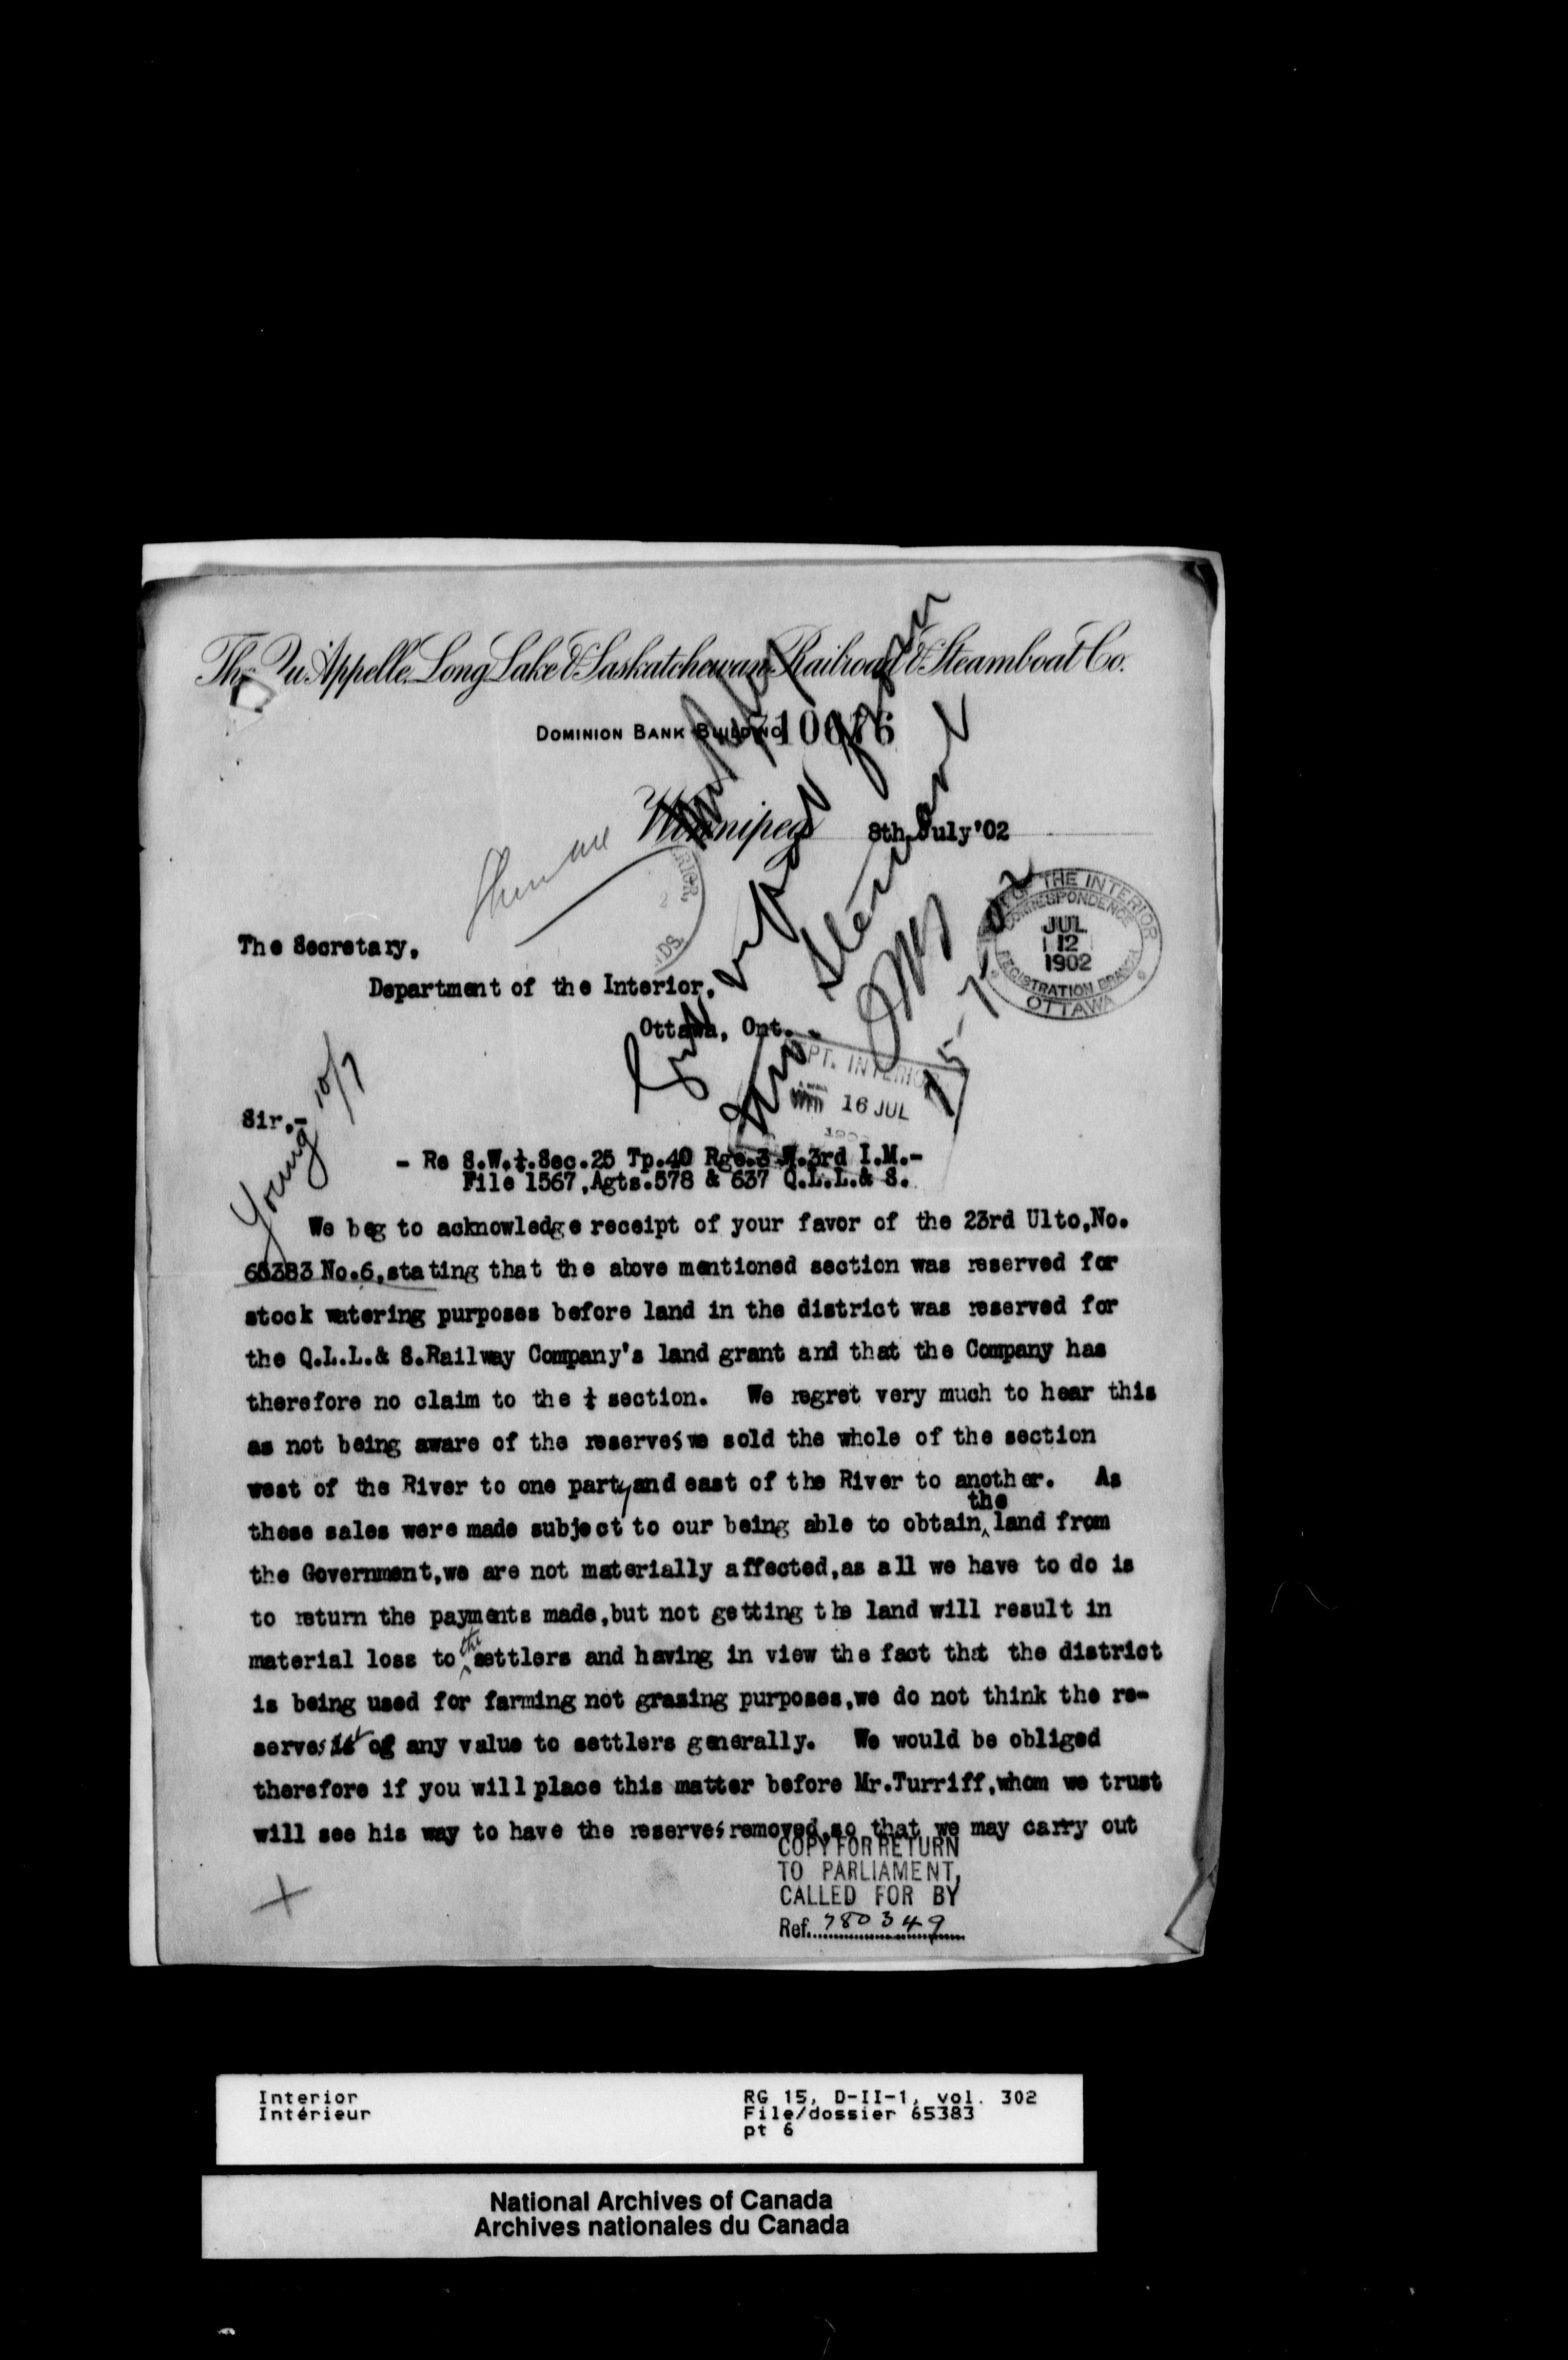 The Qu'Appelle, Long Lake & Saskatchewan Railroad & Steamboat Co.
DOMINION BANK BUILDING
Winnipeg 8th July '02
OF THE INTERIOR
CORRESPONDENCE
JUL
12
1902
REGISTRATION BRANCH
OTTAWA
The Secretary,
Department of the Interior,
Ottawa, Ont.
PT. INTERIOR
16 JUL
Young 10/7
15-7-02
Sir,-
- Re S.W.¼.Sec.25 Tp.40 Rge.3 W.3rd I.M.-
File 1567,Agts.578 & 637 Q.L.L.& S.
We beg to acknowledge receipt of your favor of the 23rd Ulto,No.
65383 No.6,stating that the above mentioned section was reserved for
stock watering purposes before land in the district was reserved for
the Q.L.L.& S.Railway Company's land grant and that the Company has
therefore no claim to the ¼ section. We regret very much to hear this
as not being aware of the reserve, we sold the whole of the section
west of the River to one party, and east of the River to another. As
these sales were made subject to our being able to obtain the land from
the Government,we are not materially affected,as all we have to do is
to return the payments made,but not getting the land will result in
material loss to the settlers and having in view the fact that the district
is being used for farming not grazing purposes,we do not think the re-
serve is of any value to settlers generally. We would be obliged
therefore if you will place this matter before Mr.Turriff,whom we trust
will see his way to have the reserve removed,so that we may carry out
COPY FOR RETURN
TO PARLIAMENT,
CALLED FOR BY
Ref. 780349
Interior
Intérieur
RG 15, D-II-1, vol. 302
File/dossier 65383
pt 6
National Archives of Canada
Archives nationales du Canada